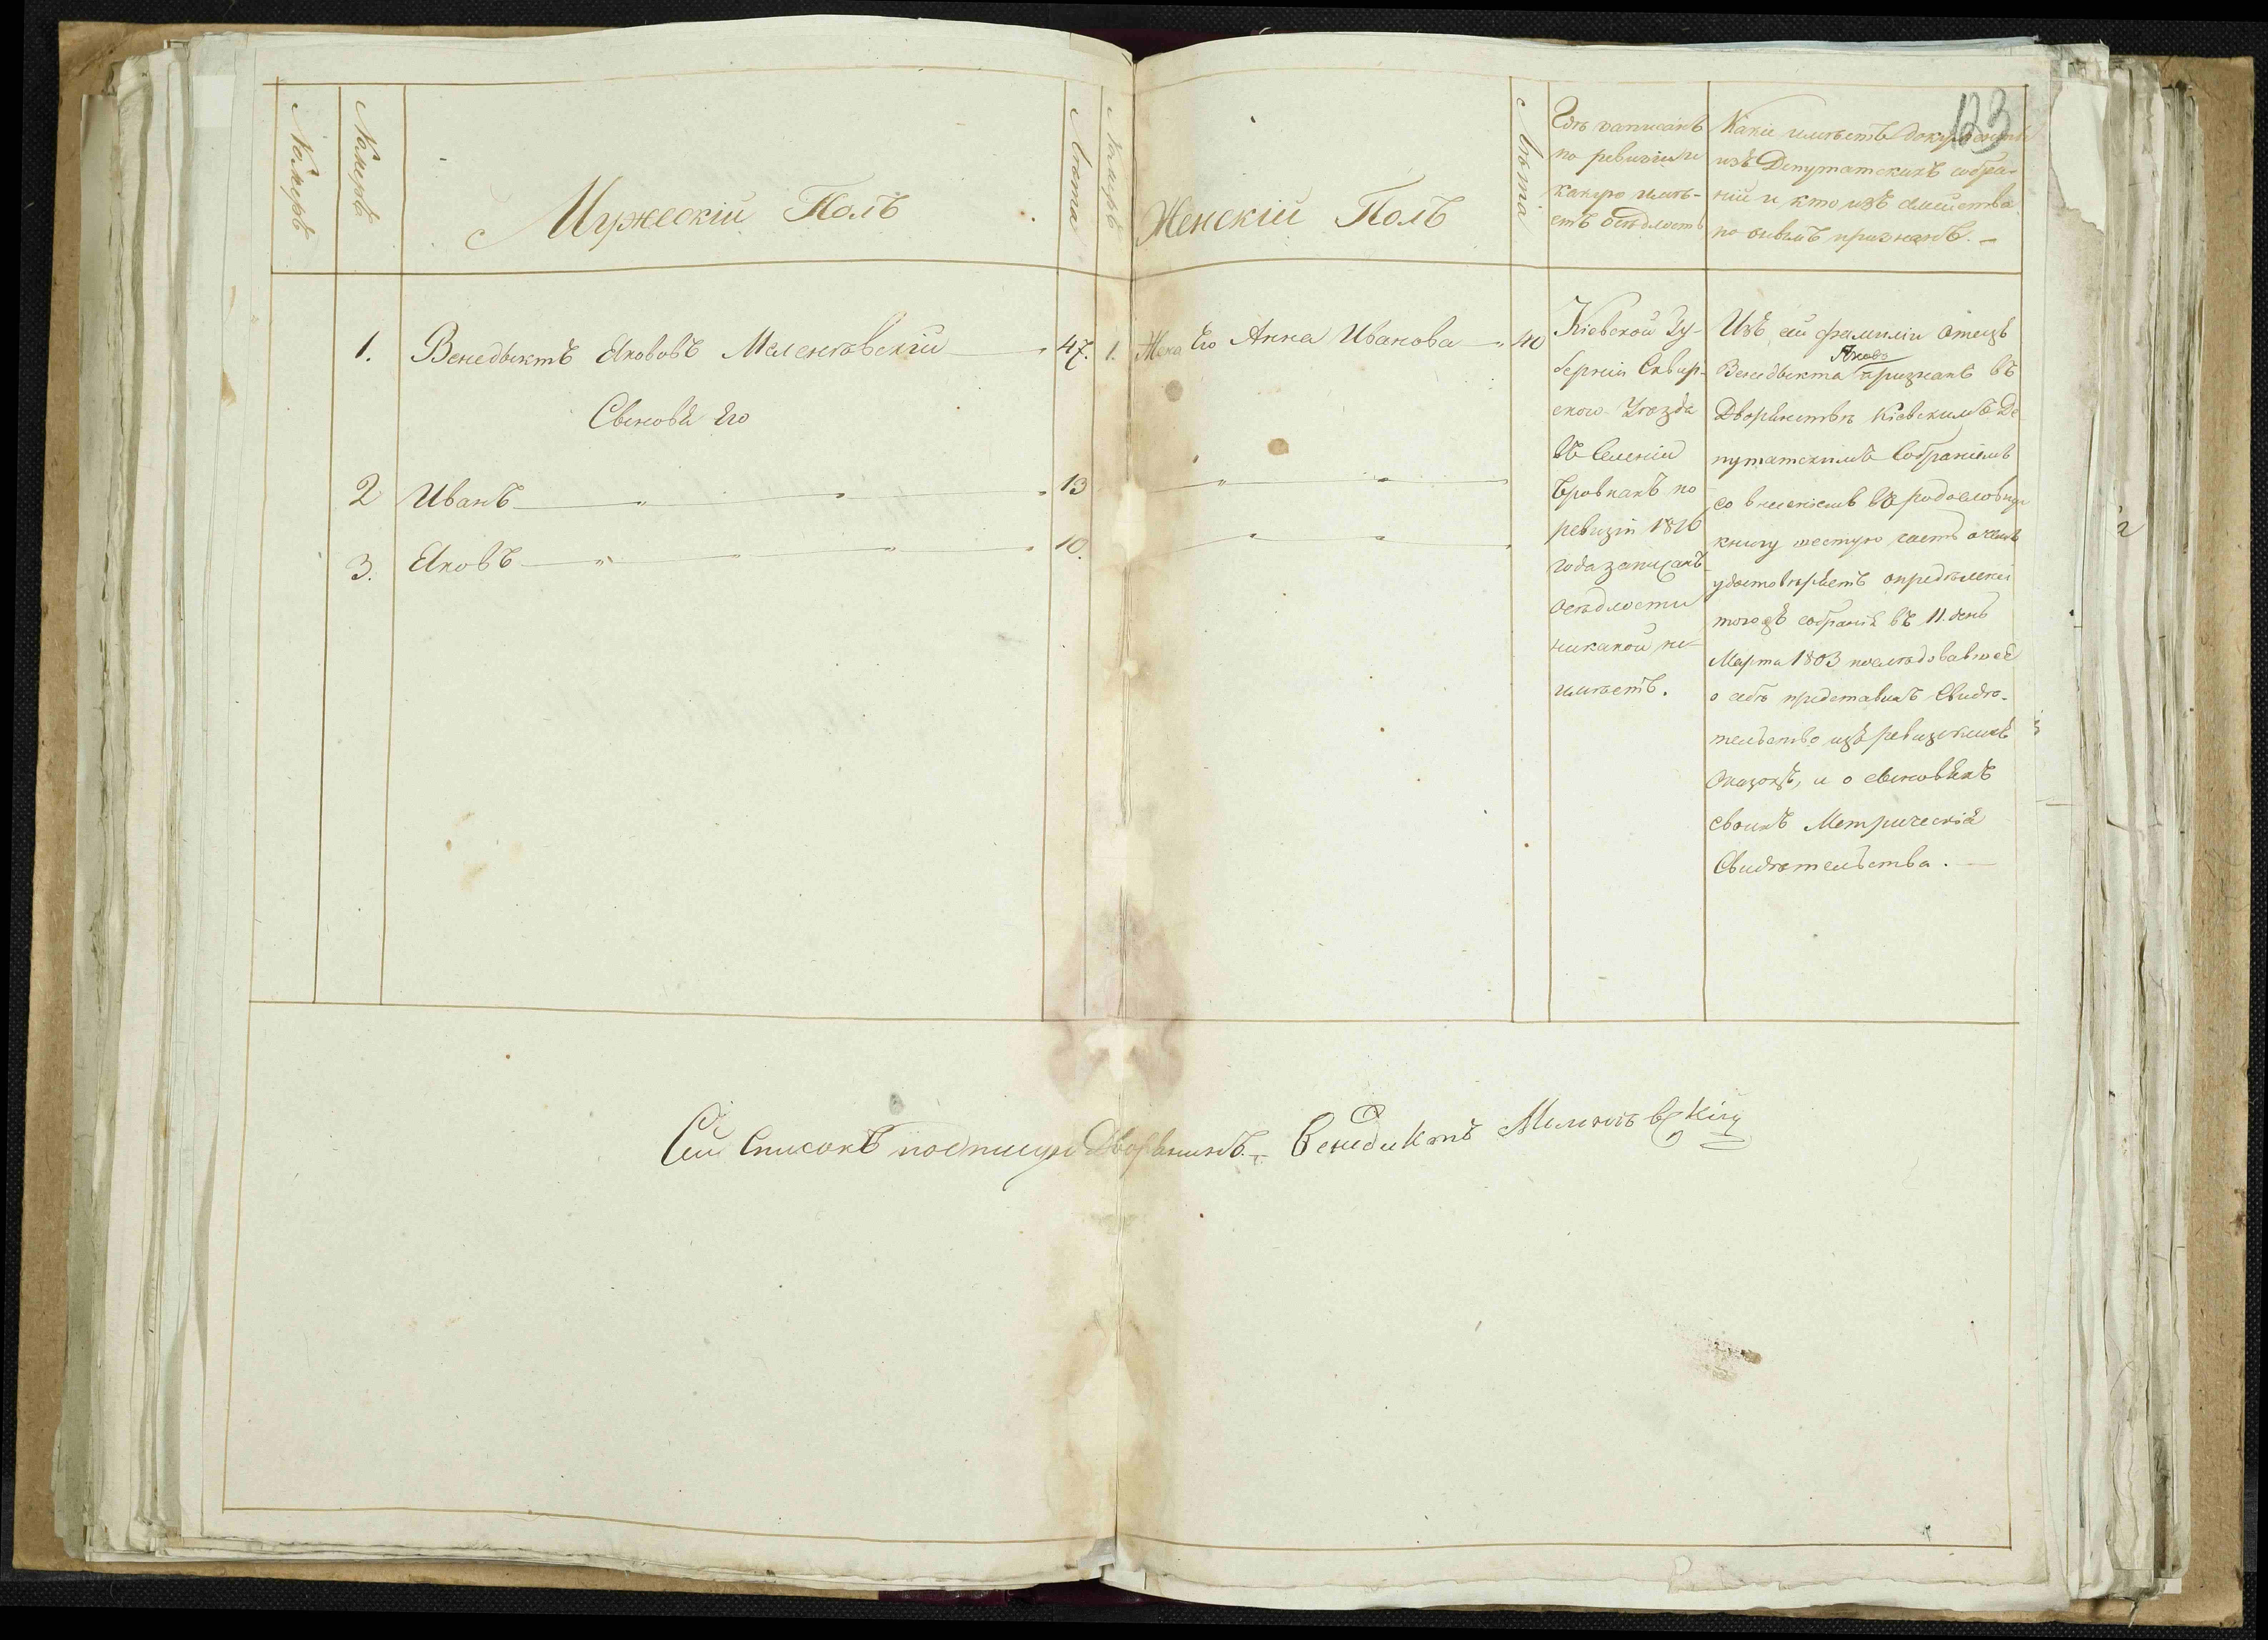 123
Номеръ
Номеръ
Мужескій Полъ
Лѣта
Номеръ
Женскій Полъ
Лѣта
Гдѣ записанъ
по ревизіи и
какую имѣ-
етъ осѣдлость
Какіе имѣетъ документы
изъ Депутатскихъ собра-
ній и кто изъ семейства
по онымъ признанъ. —
1. Венедыктъ Якововъ Маленковскій 47.
Сыновья Его
2 Иванъ 13
3. Яковъ 10.
1. Жена Его Анна Иванова 40
Кіевской Гу-
берніи Сквир-
скаго Уѣзда
Въ Селеніи
по
ревизіи 1816
года записанъ
Осѣдлости
никакой не
имѣетъ.
Изъ сей фамиліи Отецъ
Яковъ
Венедыкта признанъ въ
Дворянствѣ Кіевскимъ Де
путатскимъ Собраніемъ
со внесеніемъ въ родословную
книгу шестую часть о чемъ
удостовѣряетъ опредѣленіе
тогожъ собранія въ 11. день
Марта 1803 последовавшее
о себѣ представилъ Свидѣ-
тельство изъ ревизскихъ
Сказокъ, и о сыновьяхъ
своихъ Метрическія
Свидѣтельства. —
Сей Списокъ подписую Дворянинъ Венедиктъ